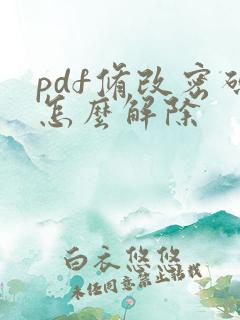 pdf修改密码
怎麼解除
白衣悠悠
未经同意禁止转载